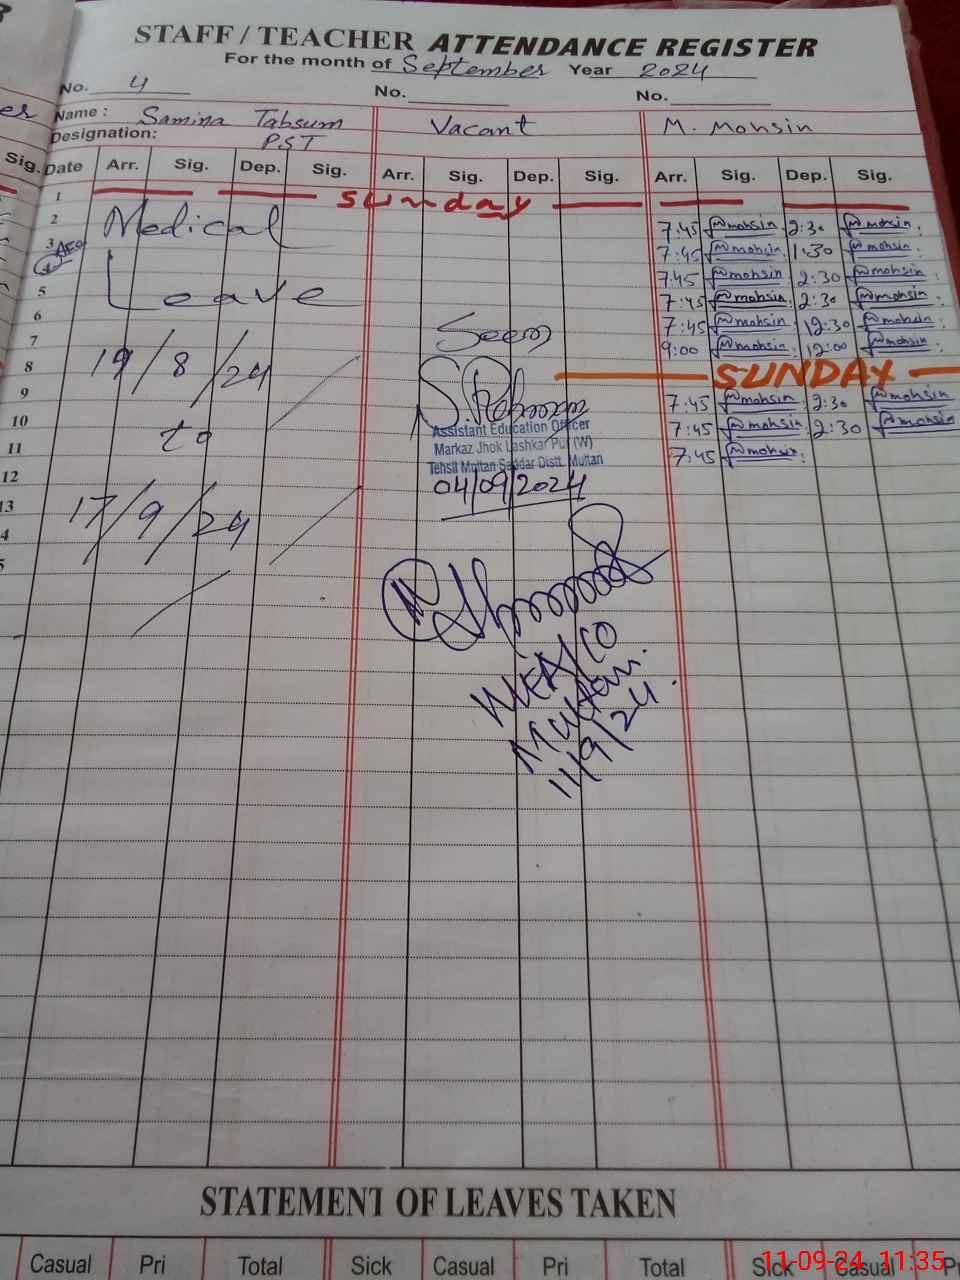 STAFF / TEACHER ATTENDANCE REGISTER
For the month of September Year 2024
No. 4 No. No.
Name : Samina Tabsum Vacant M. Mohsin
Designation: PST
Sig. Date Arr. Sig. Dep. Sig. Arr. Sig. Dep. Sig. Arr. Sig. Dep. Sig.
1 Sunday
2 Medical 7:45 mohsin 2:30 mohsin
3 AEO 7:45 mohsin 1:30 mohsin
7:45 mohsin 2:30 mohsin
5 Leave 7:45 mohsin 2:30 mohsin
6 7:45 mohsin 12:30 mohsin
7 Seen 9:00 mohsin 12:00 mohsin
8 19/8/24 SUNDAY
9 7:45 mohsin 2:30 mohsin
10 to 7:45 mohsin 2:30 mohsin
11 7:45 mohsin
Assistant Education Officer
Markaz Jhok Lashkar Pur (W)
Tehsil Multan Saddar Distt. Multan
12 04/09/2024
13 17/9/24
4
5
Multan.
11/9/24.
STATEMENT OF LEAVES TAKEN
Casual Pri Total Sick Casual Pri Total Sick Casual P
11-09-24 11:35